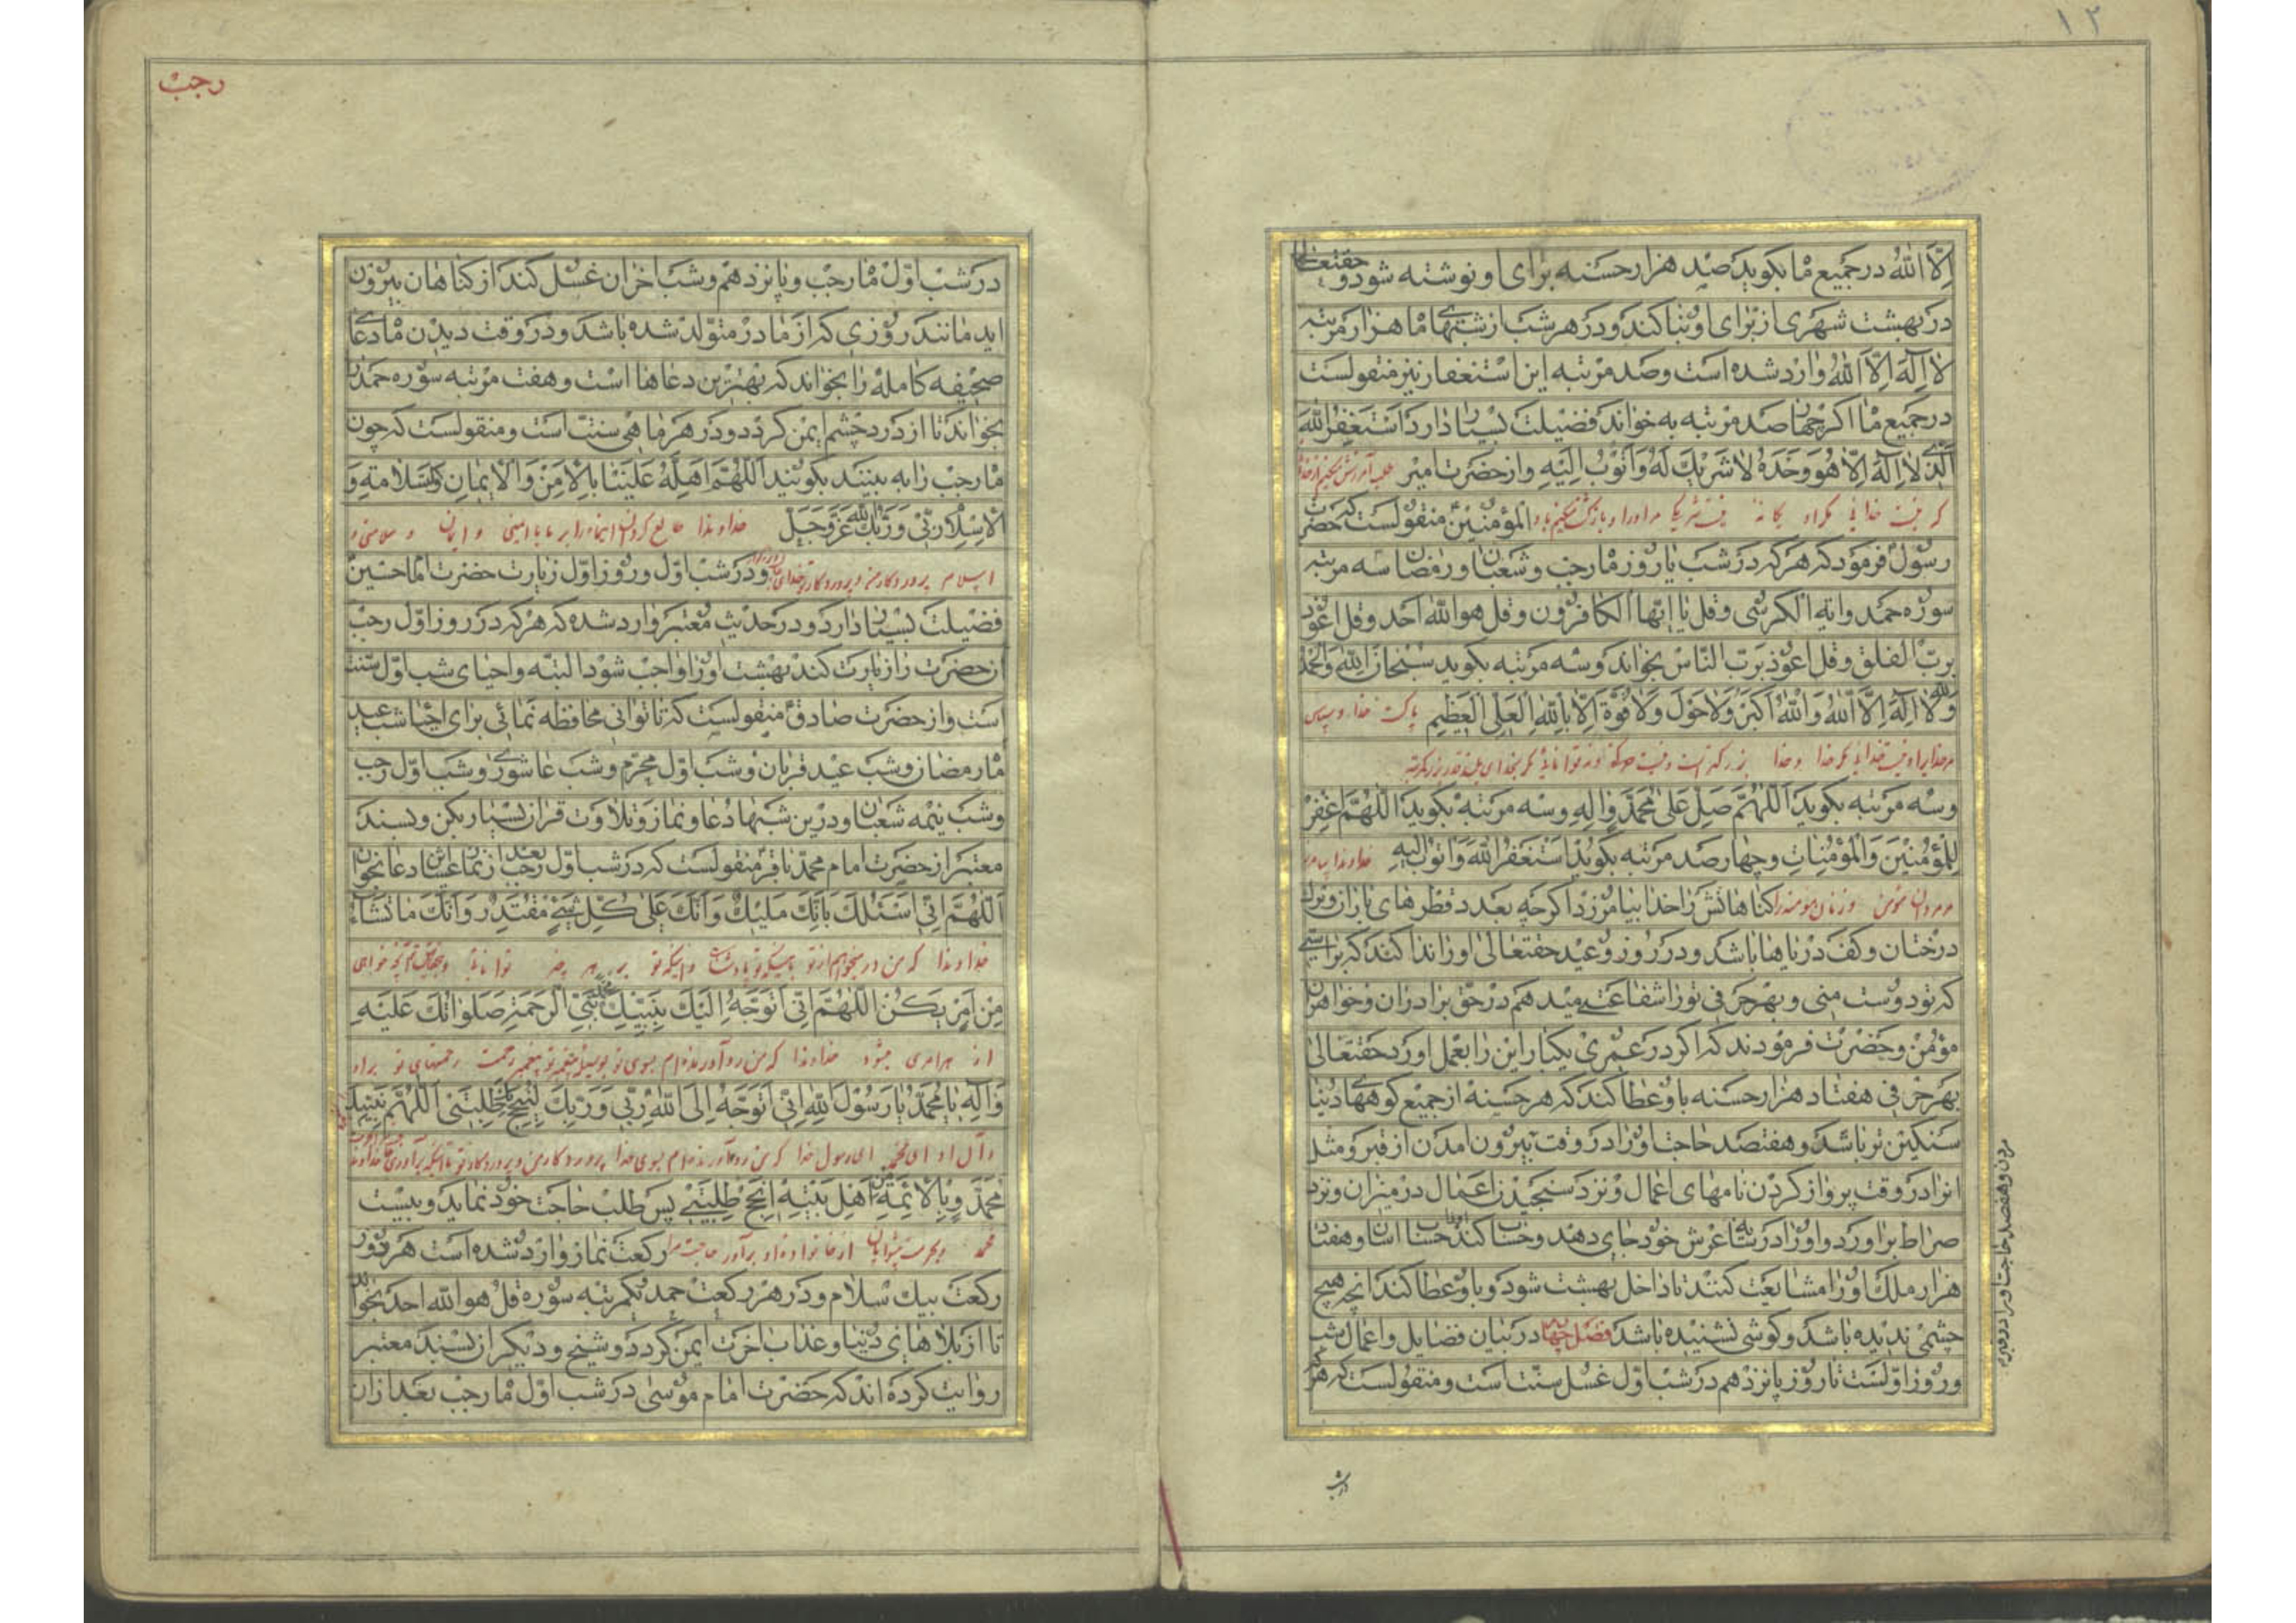 ۱۲
اِلّا اللّٰهُ در جمیع ماه بکوید صد هزار حسنه برای او نوشته شود و حقتعالی
در بهشت شهری از برای او بنا کند و در هر شب از شبهای ماه هزار مرتبه
لا اِلٰهَ اِلّا اللّٰهُ وارد شده است و صد مرتبه این استغفار نیز منقولست
در جمیع ماه اکر چهار صد مرتبه به خواند فضیلت بسیار دارد اَسْتَغْفِرُ اللّٰهَ
الَّذی لا اِلٰهَ اِلّا هُوَ وَحْدَهُ لا شَریکَ لَهُ وَاَتُوبُ اِلَیْهِ و از حضرت امیر طلب آمرزش میکنم از خدا
که نیست خدائی مکر او یکانه نیست شریکی مر او را و بازکشت میکنم باو المؤمنین منقولست که حضرت
رسول فرمود که هر که در شب یا روز ماه رجب و شعبان و رمضان سه مرتبه
سوره حمد و آیة الکرسی و قل یا ایها الکافرون و قل هو اللّٰه احد و قل اعوذ
برب الفلق و قل اعوذ برب الناس بخواند و سه مرتبه بکوید سُبْحانَ اللّٰهِ وَالْحَمْدُ
لِلّٰهِ وَلا اِلٰهَ اِلَّا اللّٰهُ وَاللّٰهُ اَکْبَرُ وَلا حَوْلَ وَلا قُوَّةَ اِلّا بِاللّٰهِ الْعَلِیِّ الْعَظیمِ پاکست خدا و سپاس
مر خدایرا و نیست خدائی مکر خدا و خدا بزرکتر است و نیست حرکة و نه توانائی مکر بخدای بلند قدر بزرک مرتبه
و سه مرتبه بکوید اَللّٰهُمَّ صَلِّ عَلی مُحَمَّدٍ وَآلِهِ و سه مرتبه بکوید اَللّٰهُمَّ اغْفِرْ
لِلْمُؤْمِنینَ وَالْمُؤْمِناتِ و چهار صد مرتبه بکوید اَسْتَغْفِرُ اللّٰهَ وَاَتُوبُ اِلَیْهِ خداوندا بیامرز
مردان مؤمن و زنان مؤمنه را کناهانش را خدا بیامرزد اکر چه بعدد قطرهای باران و برک
درختان و کف دریاها باشد و در روز عید حقتعالی او را ندا کند که براستی
که تو دوست منی و بهر حرفی تو را شفاعت میدهم در حق برادران و خواهران
مؤمن و حضرت فرمودند که اکر در عمری یکبار این را بعمل اورد حقتعالی
بهر حرفی هفتاد هزار حسنه باو عطا کند که هر حسنه از جمیع کوههای دنیا
سنکین تر باشد و هفتصد حاجت او را در وقت بیرون امدن از قبر و مثل
انرا در وقت پرواز کردن نامهای اعمال و نزد سنجیدن اعمال در میزان و نزد
صراط براورد و او را در سایه عرش خود جای دهد و حساب کند او را حساب اسان و هفتاد
هزار ملک او را مشایعت کنند تا داخل بهشت شود و باو عطا کند انچه هیچ
چشمی ندیده باشد و کوشی نشنیده باشد فصل چهارم در بیان فضایل و اعمال شب
و روز اولست تا روز پانزدهم در شب اول غسل سنت است و منقولست که هر
مردن و هفتصد حاجت او را در
در شب
رجب
در شب اول ماه رجب و پانزدهم و شب اخر ان غسل کند از کناهان بیرون
اید مانند روزی که از مادر متولد شده باشد و در وقت دیدن ماه دعای
صحیفه کامله را بخواند که بهترین دعاها است و هفت مرتبه سوره حمد را
بخواند تا از درد چشم ایمن کردد و در هر ماهی سنت است و منقولست که چون
ماه رجب را به بینید بکوئید اَللّٰهُمَّ اَهِلَّهُ عَلَیْنا بِالْاَمْنِ وَالْایمانِ وَالسَّلامَةِ وَ
الْاِسْلامِ رَبّی وَرَبُّکَ اللّٰهُ عَزَّ وَجَلَّ خداوندا طالع کردان اینماه را بر ما با ایمنی و ایمان و سلامتی و
اسلام پروردکار من و پروردکار تو خدای و در شب اول و روز اول زیارت حضرت امام حسین
فضیلت بسیار دارد و در حدیث معتبر وارد شده که هر که در روز اول رجب
ان حضرت را زیارت کند بهشت او را واجب شود البته و احیای شب اول سنت
است و از حضرت صادق منقولست که تا توانی محافظه نمائی برای احیا شب عید
ماه رمضان و شب عید قربان و شب اول محرم و شب عاشوری و شب اول رجب
و شب نیمه شعبان و در این شبها دعا و نماز و تلاوت قران بسیار بکن و بسند
معتبر از حضرت امام محمد باقر منقولست که در شب اول رجب بعد از نماز عشا این دعا بخوان
اَللّٰهُمَّ اِنّی اَسْئَلُکَ بِاَنَّکَ مَلیکٌ وَاَنَّکَ عَلی کُلِّ شَیْءٍ مُقْتَدِرٌ وَاَنَّکَ ما تَشاءُ
خداوندا که من در میخواهم از تو باینکه تو پادشاهی و اینکه تو بر هر چیز توانائی و آنچه خواهی
مِنْ اَمْرٍ یَکُنْ اَللّٰهُمَّ اِنّی اَتَوَجَّهُ اِلَیْکَ بِنَبِیِّکَ مُحَمَّدٍ نَبِیِّ الرَّحْمَةِ صَلَواتُکَ عَلَیْهِ
از هر امری میشود خداوندا که من رو آورنده ام بسوی تو بوسیله پیغمبر تو پیغمبر رحمت رحمتهای تو بر او
وَآلِهِ یا مُحَمَّدُ یا رَسُولَ اللّٰهِ اِنّی اَتَوَجَّهُ اِلَی اللّٰهِ رَبّی وَرَبِّکَ لِیُنْجِحَ بِکَ طَلِبَتی اَللّٰهُمَّ بِنَبِیِّکَ
و آل او ای محمد ای رسول خدا که من رو آورنده ام بسوی خدا پروردکار من و پروردکار تو تا اینکه برآورد خداوندا
مُحَمَّدٍ وَبِالْاَئِمَّةِ مِنْ اَهْلِ بَیْتِهِ اَنْجِحْ طَلِبَتی پس طلب حاجت خود نماید و بیست
محمد و بحرمت پیشوایان از خانواده او برآور حاجت مرا رکعت نماز وارد شده است هر دو
رکعت بیک سلام و در هر رکعت حمد یکمرتبه سوره قل هو اللّٰه احد بخواند
تا از بلاهای دنیا و عذاب اخرت ایمن کردد و شیخ و دیکران بسند معتبر
روایت کرده اند که حضرت امام موسی در شب اول ماه رجب بعد از ان